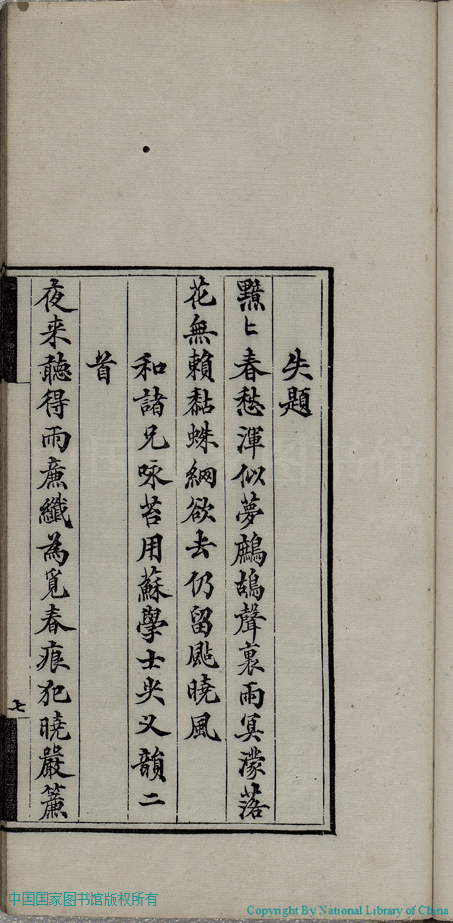 失題
黯〻春愁渾似夢鷓鴣聲裏雨冥濛落
花無賴黏蛛網欲去仍留颭曉風
和諸兄咏苔用蘇學士尖叉韻二
首
夜来聽得雨廉纖為覓春痕犯曉嚴簾
七
中国国家图书馆版权所有
Copyright By National Library of China